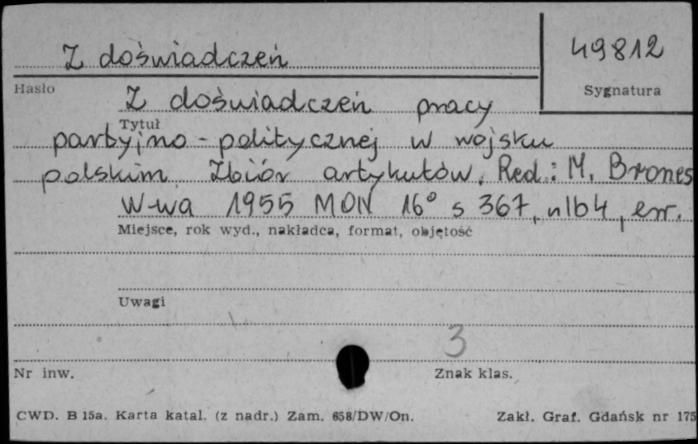 Z doświadczeń
49812
Hasło
Sygnatura
Z doświadczeń pracy
Tytuł
partyjno-politycznej w wojsku
polskim. Zbiór artykułów. Red.: M. Brones
W-wa 1955 MON 16° s 367, nlb 4, err.
Miejsce, rok wyd., nakładca, format, objętość
Uwagi
3
Nr inw.
Znak klas.
CWD. B 15a. Karta katal. (z nadr.) Zam. 658/DW/On.
Zakł. Graf. Gdańsk nr 175